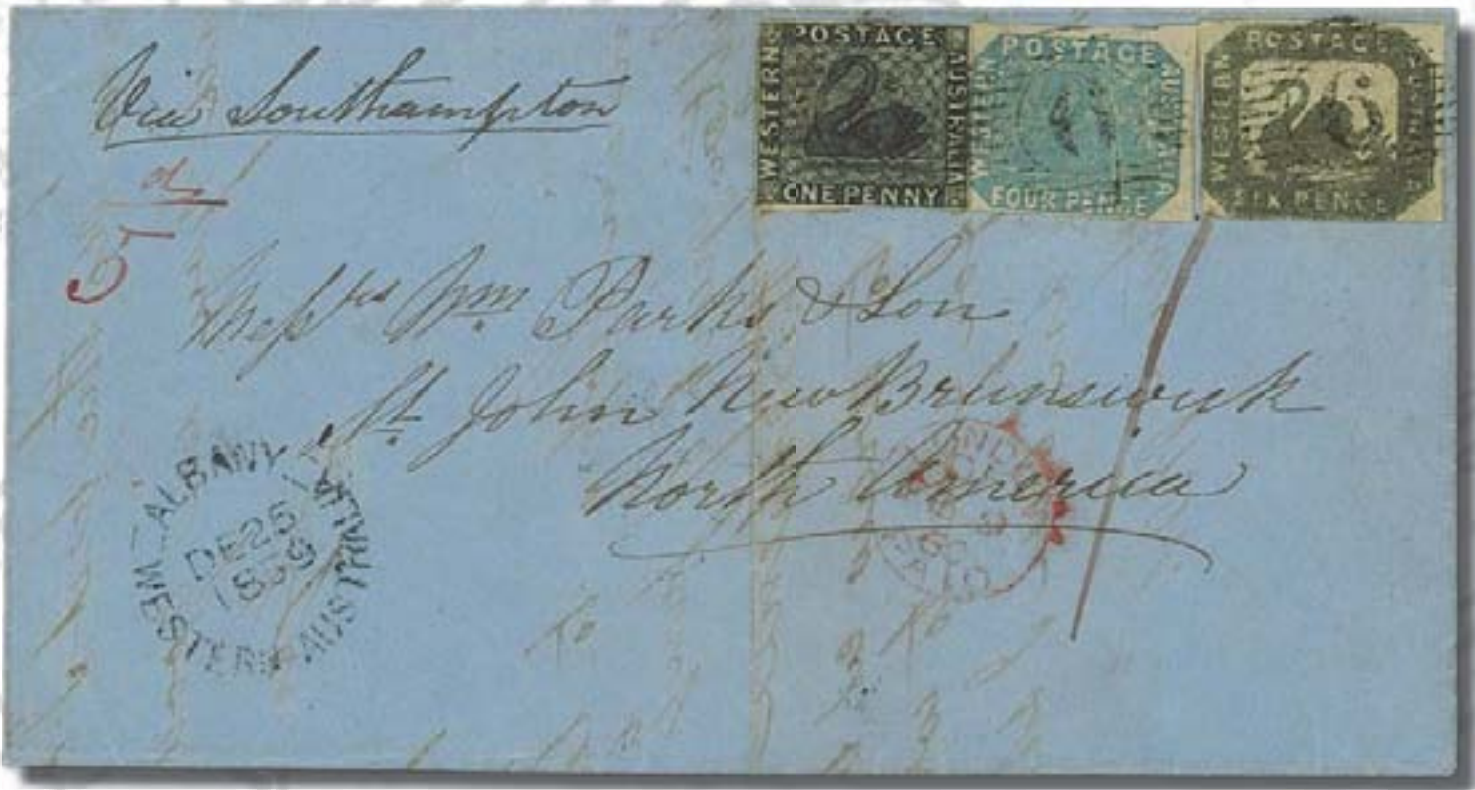 Via Southampton
POSTAGE
WESTERN AUSTRALIA
ONE PENNY
POSTAGE
WESTERN AUSTRALIA
FOUR PENCE
POSTAGE
WESTERN
SIX PENCE
5d
Messrs Wm. Parks & Son
St. John New Brunswick
North America
ALBANY
DE 25
1859
WESTERN AUSTRALIA
PAID
1